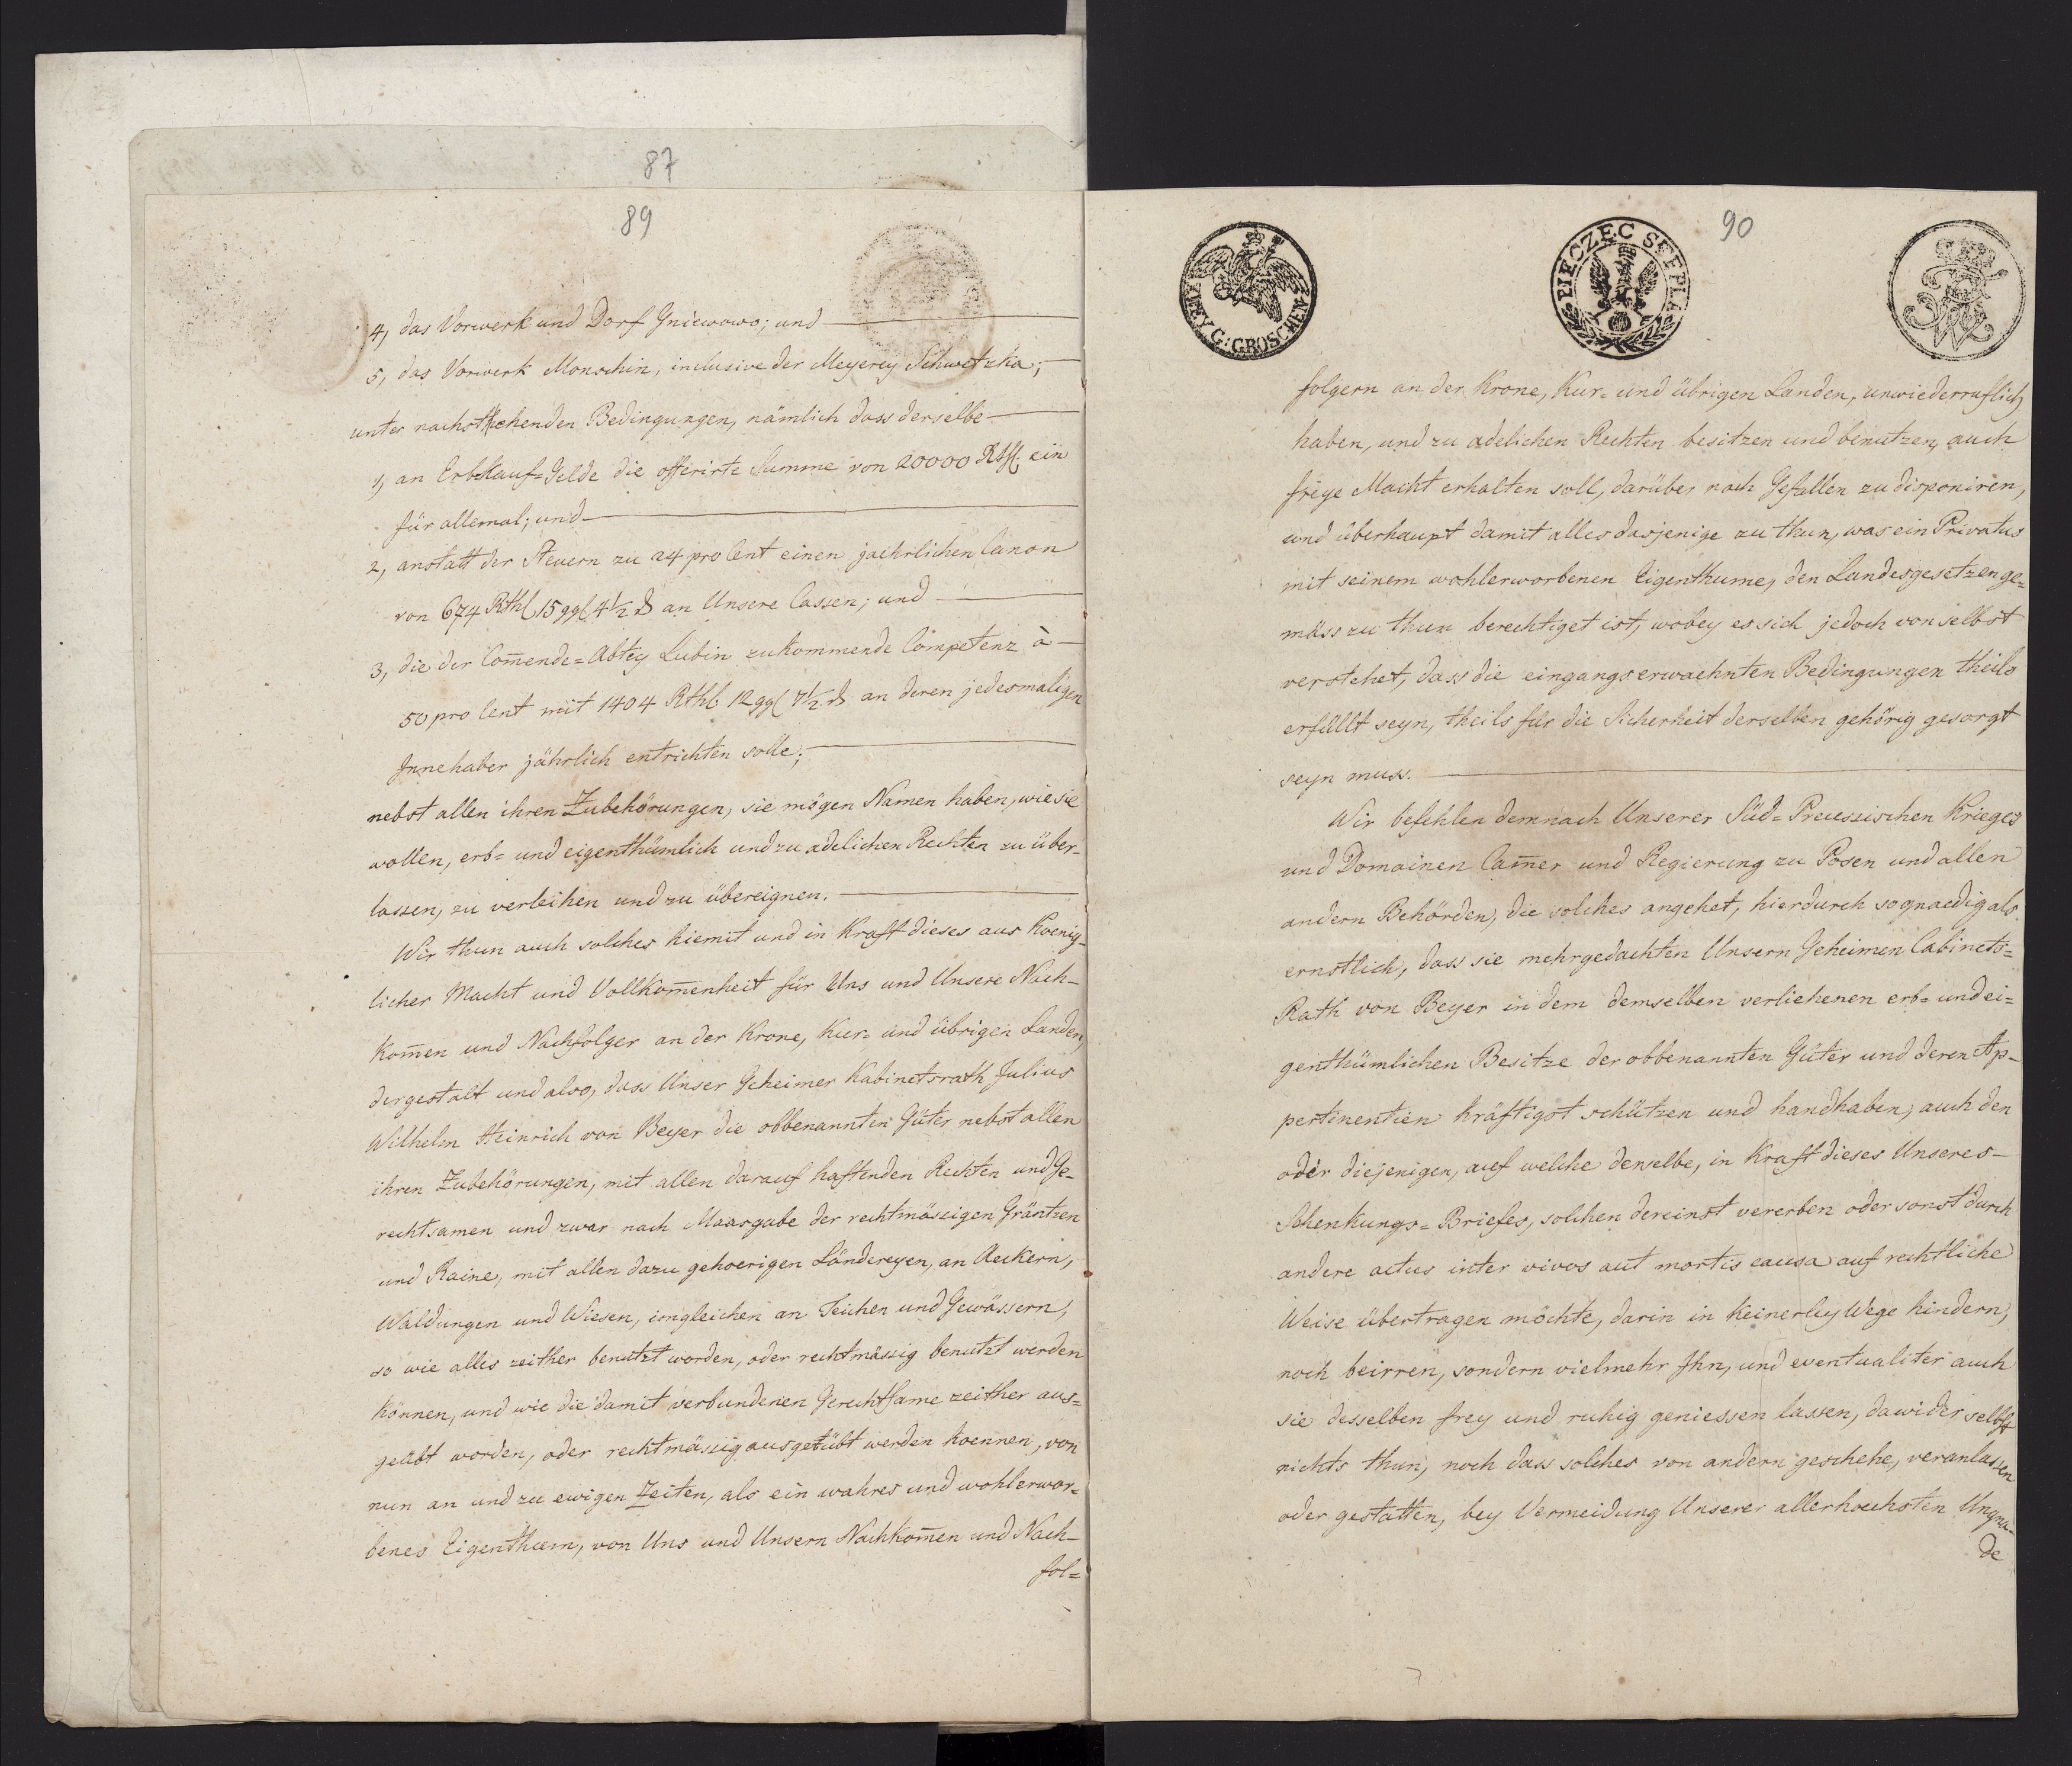 87
89
4, das Vorwerk und Dorf Gniewowo; und
5, das Vorwerk Monschin, inclusive der Meyerey Schwetzka;
unter nachstehenden Bedingungen, nämlich dass derselbe
1, an Erbkauf=Gelde die offerirte Summe von 20000 Rthl. ein
für allemal; und
2, anstatt der Steuern zu 24 pro Cent einen jaehrlichen Canon
von 674 Rthl 15 ggl 4½ ₰ an Unsere Cassen; und
3, die der Com̅ende=Abtey Lubin zukommende Competenz à
50 pro Cent mit 1404 Rthl 12 ggl 7½ ₰ an deren jedesmaligen
Innehaber jährlich entrichten solle;
nebst allen ihren Zubehörungen, sie mögen Namen haben, wie sie
wollen, erb= und eigenthümlich und zu adelichen Rechten zu über-
lassen, zu verleihen und zu übereignen.
Wir thun auch solches hiemit und in Kraft dieses aus Koenig-
licher Macht und Vollkom̅enheit für Uns und Unsere Nach-
kom̅en und Nachfolger an der Krone, Kur= und übrigen Landen,
dergestalt und also, dass Unser Geheimer Kabinetsrath Julius
Wilhelm Heinrich von Beyer die obbenannten Güter nebst allen
ihren Zubehörungen, mit allen darauf haftenden Rechten und Ge-
rechtsamen und zwar nach Maasgabe der rechtmässigen Gräntzen
und Raine, mit allen dazu gehoerigen Ländereyen, an Aeckern,
Waldungen und Wiesen, imgleichen an Teichen und Gewässern,
so wie alles zeither benutzt worden, oder rechtmässig benutzt werden
können, und wie die damit verbundenen Gerechtsame zeither aus=
geübt worden, oder rechtmässig ausgeübt werden koennen, von
nun an und zu ewigen Zeiten, als ein wahres und wohlerwor=
benes Eigenthum, von Uns und Unsern Nachkom̅en und Nach-
fol=
90
ZWEY G: GROSCHEN
PIECZEC STEPLA
folgern an der Krone, Kur= und übrigen Landen, unwiederruflich
haben, und zu adelichen Rechten besitzen und benutzen, auch
freye Macht erhalten soll, darüber nach Gefallen zu disponiren,
und überhaupt damit alles dasjenige zu thun, was ein Privatus
mit seinem wohlerworbenen Eigenthume, den Landesgesetzen ge=
mäss zu thun berechtiget ist, wobey es sich jedoch von selbst
verstehet, dass die eingangs erwaehnten Bedingungen theils
erfüllt seyn, theils für die Sicherheit derselben gehörig gesorgt
seyn muss.
Wir befehlen demnach Unserer Süd=Preussischen Krieges
und Domainen Cam̅er und Regierung zu Posen und allen
andern Behörden, die solches angehet, hierdurch so gnaedig als
ernstlich, dass sie mehrgedachten Unsern Geheimen Cabinets=
Rath von Beyer in dem demselben verliehenen erb= und ei=
genthümlichen Besitze der obbenannten Güter und deren Ap-
pertinentien kräftigst schützen und handhaben, auch den
oder diejenigen, auf welche derselbe, in Kraft dieses Unseres
Schenkungs=Briefes, solchen dereinst vererben oder sonst durch
andere actus inter vivos aut mortis causa auf rechtliche
Weise übertragen möchte, darin in keinerley Wege hindern,
noch beirren, sondern vielmehr Ihn, und eventualiter auch
sie desselben frey und ruhig geniessen lassen, dawider selbst
nichts thun, noch dass solches von andern geschehe, veranlassen
oder gestatten, bey Vermeidung Unserer allerhoechsten Ungna-
de